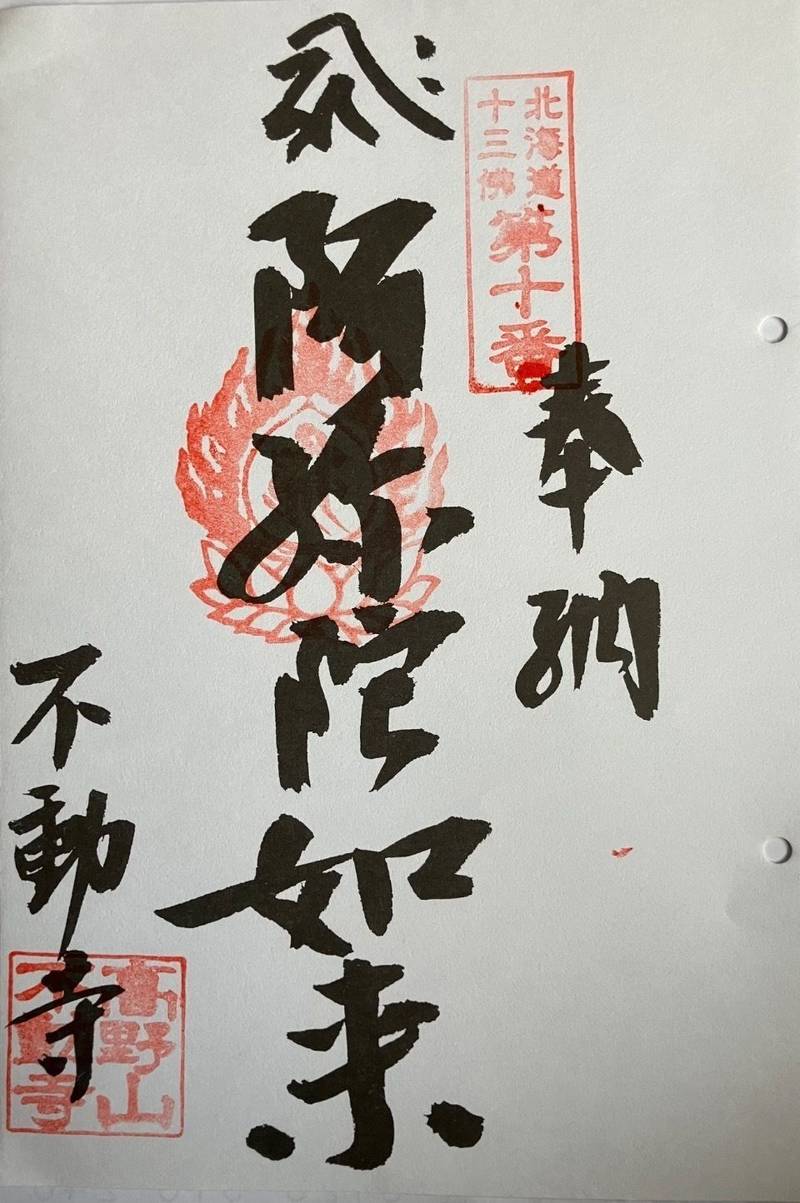 北海道
十三佛
第十番
奉納
𑖮𑖿𑖨𑖱𑖾
阿弥陀如来
不動寺
高野山
不動寺